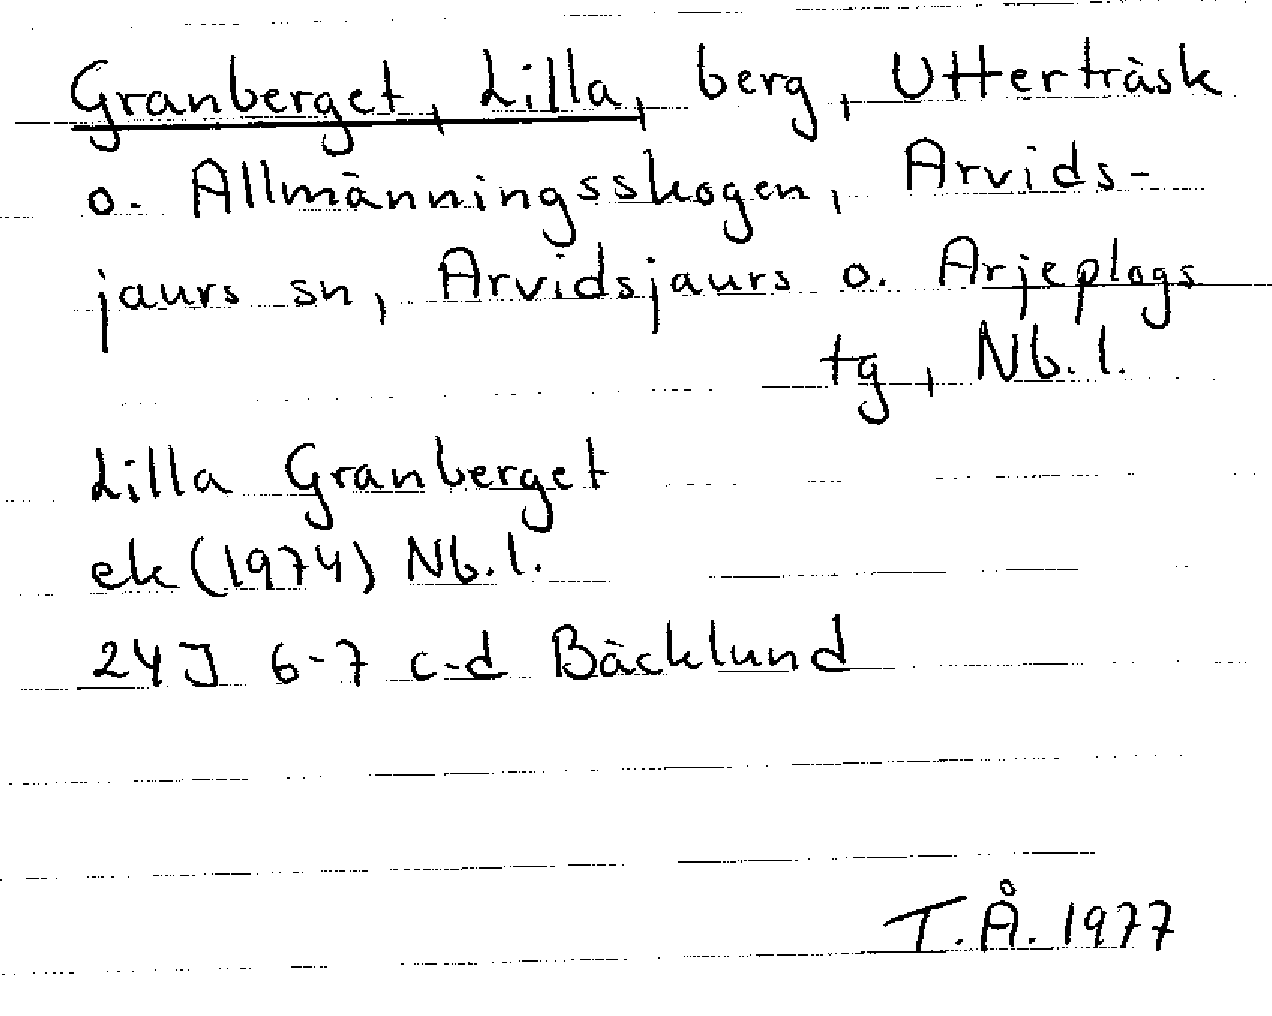 Granberget, Lilla, berg, Utterträsk
o. Allmänningsskogen, Arvids-
jaurs sn, Arvidsjaurs o. Arjeplogs
tg, Nb. l.
Lilla Granberget
ek (1974) Nb. l.
24J 6-7 c-d Bäcklund
T.Å. 1977